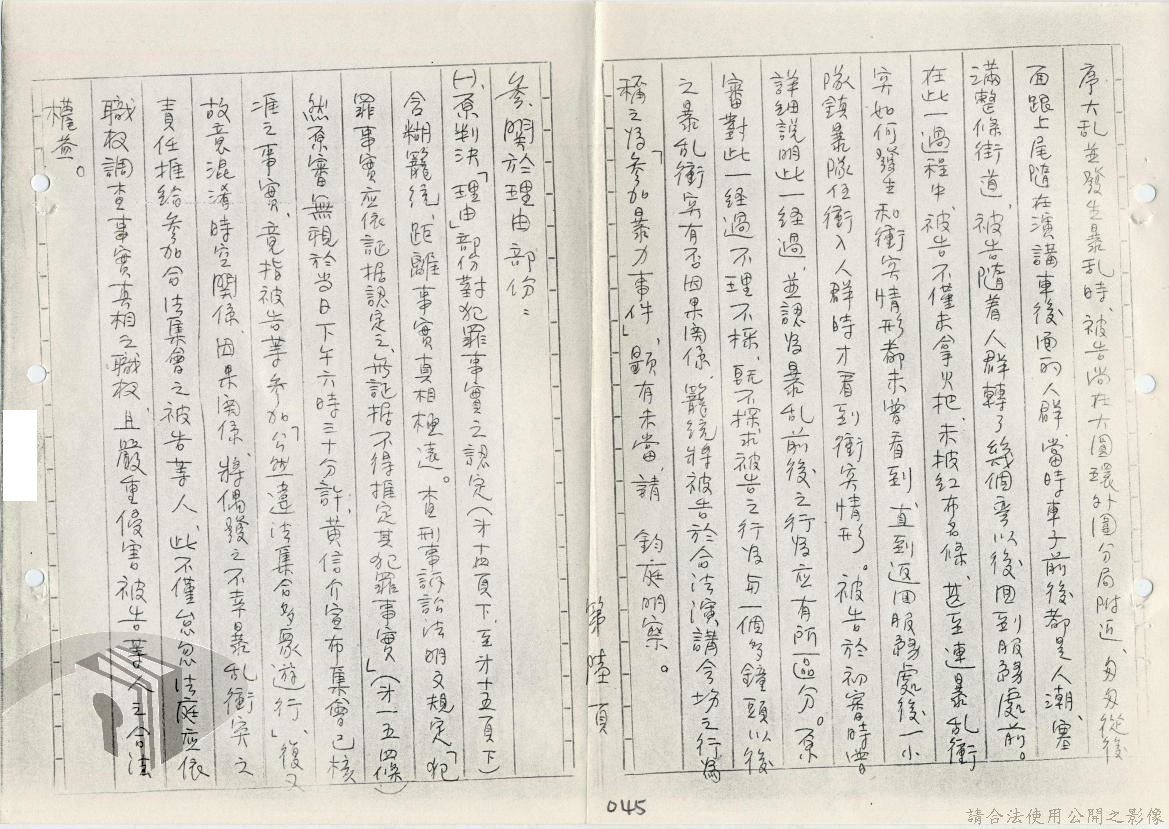 序大乱並發生暴乱時、被告尚在大圓環外圍分局附近、匆匆從後
面跟上尾隨在演講車後面的人群、當時車子前後都是人潮、塞
滿整條街道、被告隨着人群轉了幾個彎以後回到服務處前。
在此一過程中、被告不僅未拿火把、未披紅布名條、甚至連暴乱衝
突如何發生和衝突情形都未曾看到、直到返回服務處後一小
隊鎮暴隊伍衝入人群時才看到衝突情形。被告於初審時曾
詳細說明此一経過、並認為暴乱前後之行為应有所區分。原
審對此一経過不理不採、既不探求被告之行為与一個多鐘頭以後
之暴乱衝突有否因果関係、籠統將被告於合法演講会場之行為
稱之為「參加暴力事件」、顯有未當、請 鈞庭明察。
第陸頁
參、關於理由部份：
(一)、原判決「理由」部份對犯罪事實之認定(才十四頁下、至才十五頁下)
含糊籠統、距離事實真相極遠。查刑事訴訟法明文規定、「犯
罪事實应依証据認定之、無証据不得推定其犯罪事實」(才一五四條)
然原審無視於当日下午六時三十分許、黃信介宣布集會已核
准之事實、竟指被告等參加「公然違法集合群眾遊行」、復又
故意混淆時空関係、因果関係、將偶發之不幸暴乱衝突之
責任推給參加合法集會之被告等人、此不僅怠忽法庭應依
職权調查事實真相之職权、且嚴重侵害被告等人之合法
權益。
045
請合法使用公開之影像